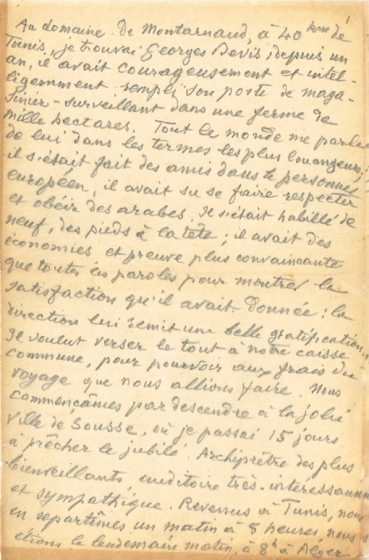 1
Au domaine de Montarnaud, à 40 kms de
Tunis, je trouvai Georges Devis ; depuis un
an, il avait courageusement et intel-
ligemment rempli son poste de maga-
sinier-surveillant dans une ferme de
mille hectares. Tout le monde me parla
de lui dans les termes les plus louangeurs ;
il s'était fait des amis dans le personnel
européen, il avait su se faire respecter
et obéir des arabes. Il s'était habillé de
neuf, des pieds à la tête ; il avait des
économies et preuve plus convaincante
que toutes les paroles pour montrer la
satisfaction qu'il avait donnée ; la
direction lui remit une belle gratification.
Il voulut verser le tout à notre caisse
commune, pour pourvoir aux frais du
voyage que nous allions faire. Nous
commençâmes par descendre à la jolie
ville de Sousse, où je passai 15 jours
à prêcher le jubilé. Archiprêtre des plus
bienveillants, auditoire très-intéressant
et sympathique. Revenus à Tunis, nous
en repartîmes un matin à 8 heures, nous
étions le lendemain matin, à 8h à Alger